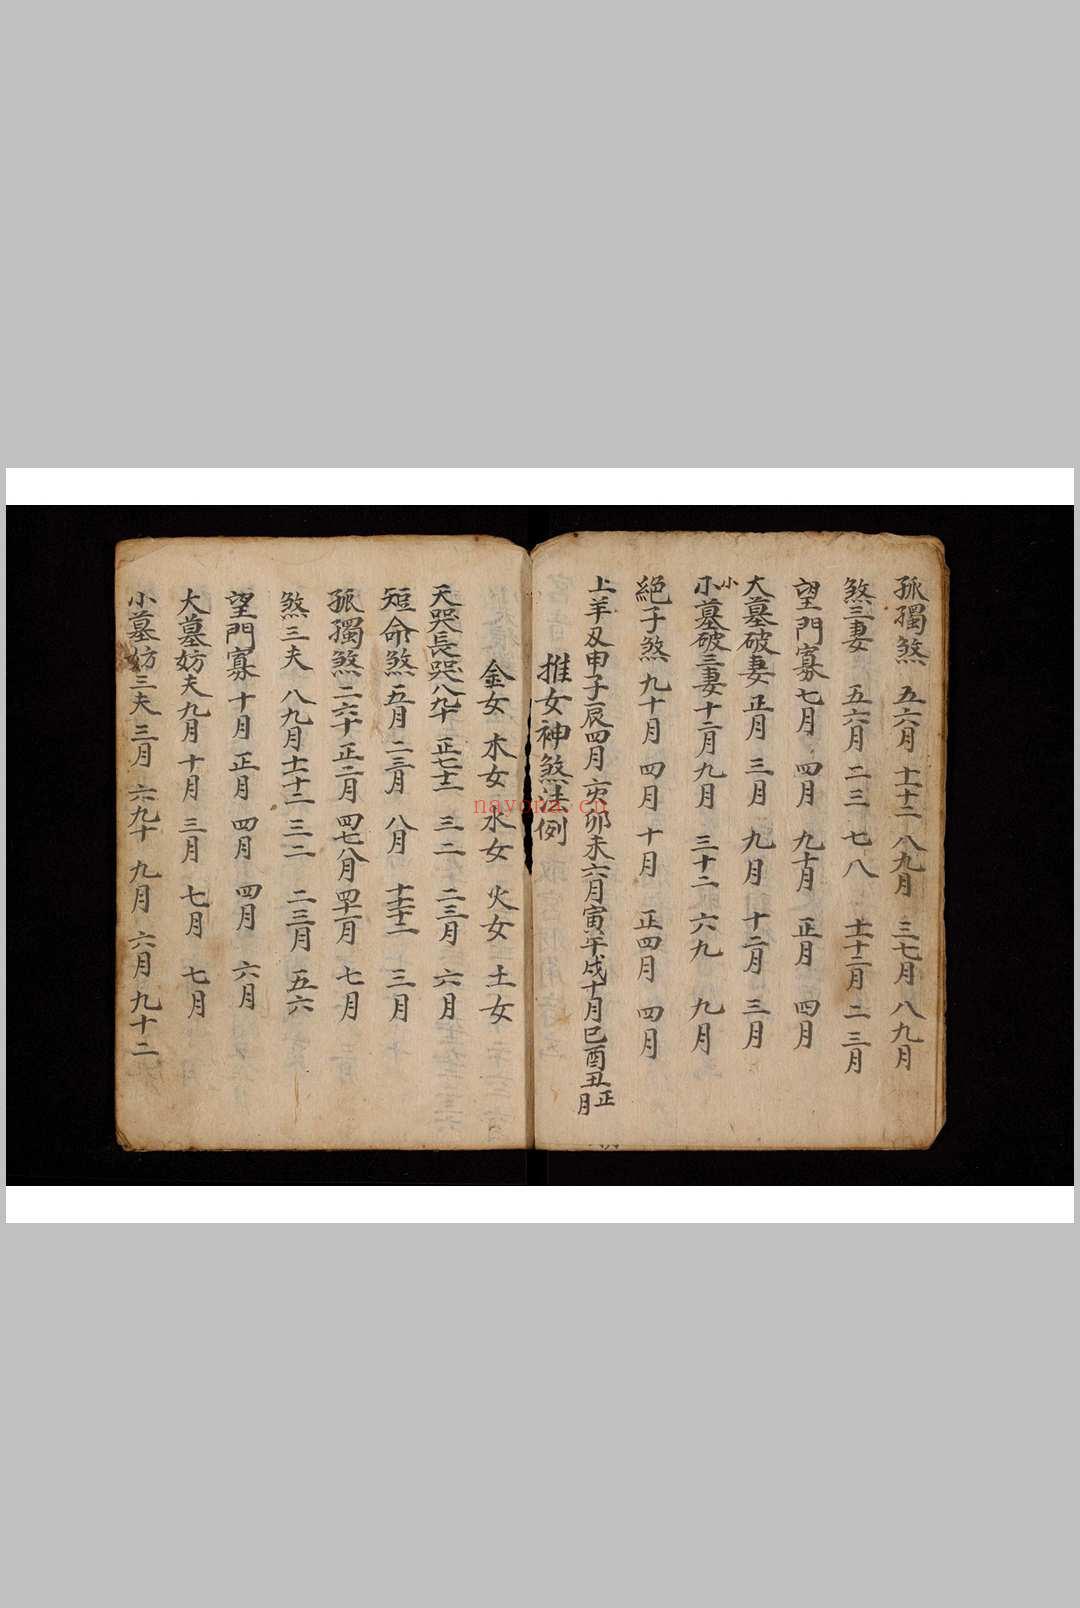 孤獨煞 五六月 十十二 八九月 三七月 八九月
煞三妻 五六月 二三 七八 十十二月 二三月
望門寡 七月 四月 九十月 正月 四月
大墓破妻 正月 三月 九月 十二月 三月
小墓破三妻 十二月 九月 三十二 六九 九月
絕子煞 九十月 四月 十月 正四月 四月
上羊刃申子辰四月 亥卯未六月寅午戌十月巳酉丑正月
推女神煞法例
金女 木女 水女 火女 土女
天哭長哭 八九十 正七十一 三二 二三月 六月
短命煞 五月 二三月 八月 十十二 三月
孤獨煞 二六十 正二月 四七八月 四十一月 七月
煞三夫 八九月 十十二 三二 二三月 五六
望門寡 十月 正月 四月 四月 六月
大墓妨夫 九月 十月 三月 七月 七月
小墓妨三夫 三月 六九十 九月 六月 九十二
navona.cn